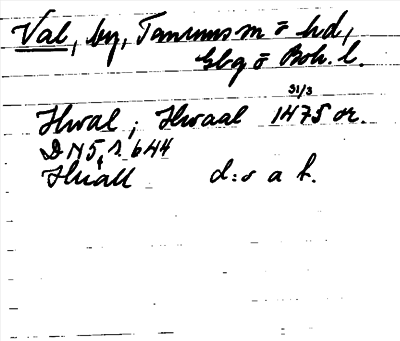 Val, by, Tanums sn ō hd,
Gbg ō Boh. l.
31/3
Hwal ; Hwaal 1475 or.
DN 5, s. 644
Huall d:o a k.